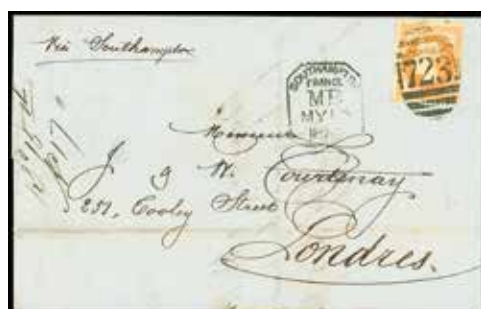 Via Southampton
723
SOUTHAMPTON
FRANCE
MB
MY
Messieurs
J g W. Courtenay
251, Cooley Street
Londres.